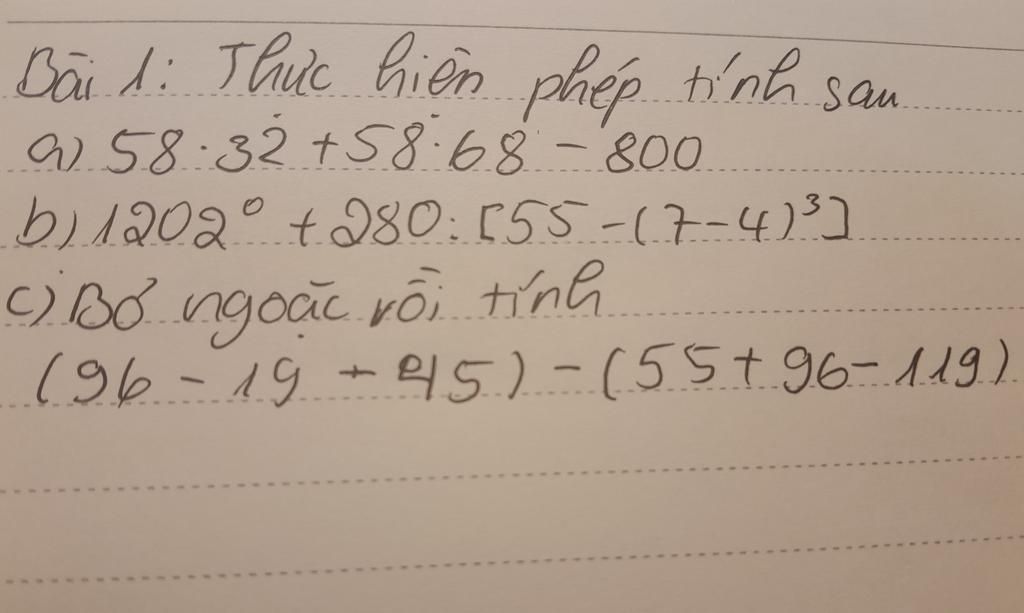 Bài 1: Thực hiện phép tính sau
a) 58 · 32 + 58 · 68 - 800
b) 1202⁰ + 280 : [55 - (7 - 4)³]
c) Bỏ ngoặc rồi tính
(96 - 19 - 45) - (55 + 96 - 119)